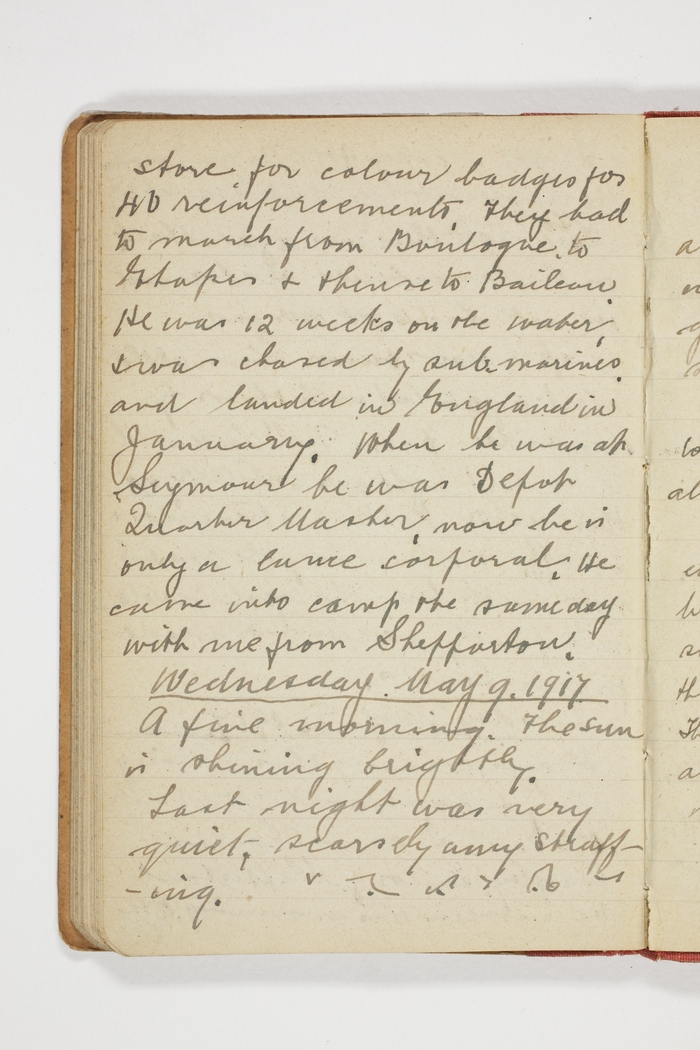 store for colour badges for
40 reinforcements. They had
to march from Boulogne to
Etapes & thense to Baileau.
He was 12 weeks on the water,
& was chased by submarines
and landed in England in
January. When he was at
Seymour he was Depot
Quarter Master, now he is
only a lance corporal. He
came into camp the same day
with me from Shepparton.
Wednesday. May 9. 1917
A fine morning. The sun
is shining brightly.
Last night was very
quiet, scarsely any straff-
-ing.